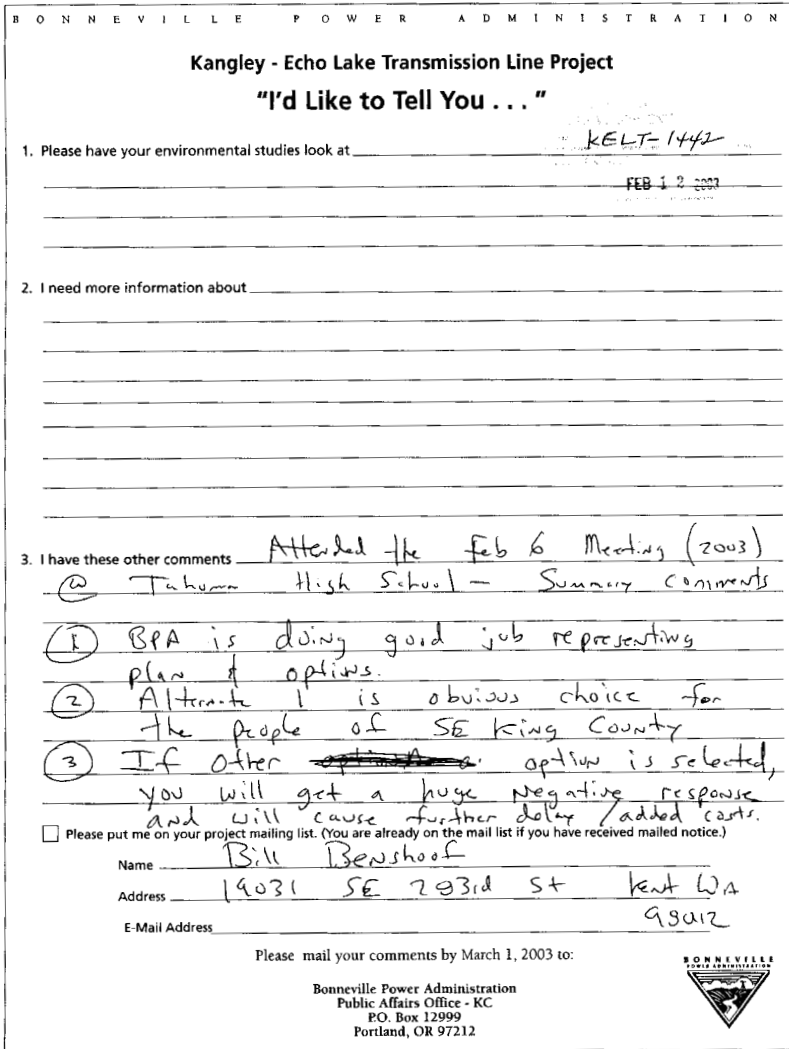 BONNEVILLE POWER ADMINISTRATION
Kangley - Echo Lake Transmission Line Project
"I'd Like to Tell You . . . "
KELT-1442
1. Please have your environmental studies look at
FEB 1 2 2003
2. I need more information about
3. I have these other comments Attended the Feb 6 Meeting (2003)
@ Tahoma High School - Summary Comments
1 BPA is doing good job representing
plan & options.
2 Alternate 1 is obvious choice for
the people of SE King County
3 If other option is selected,
you will get a huge negative response
and will cause further delay / added costs.
Please put me on your project mailing list. (You are already on the mail list if you have received mailed notice.)
Name Bill Benshoof
Address 19031 SE 293rd St Kent WA
E-Mail Address
Please mail your comments by March 1, 2003 to:
Bonneville Power Administration
Public Affairs Office - KC
P.O. Box 12999
Portland, OR 97212
BONNEVILLE
POWER ADMINISTRATION